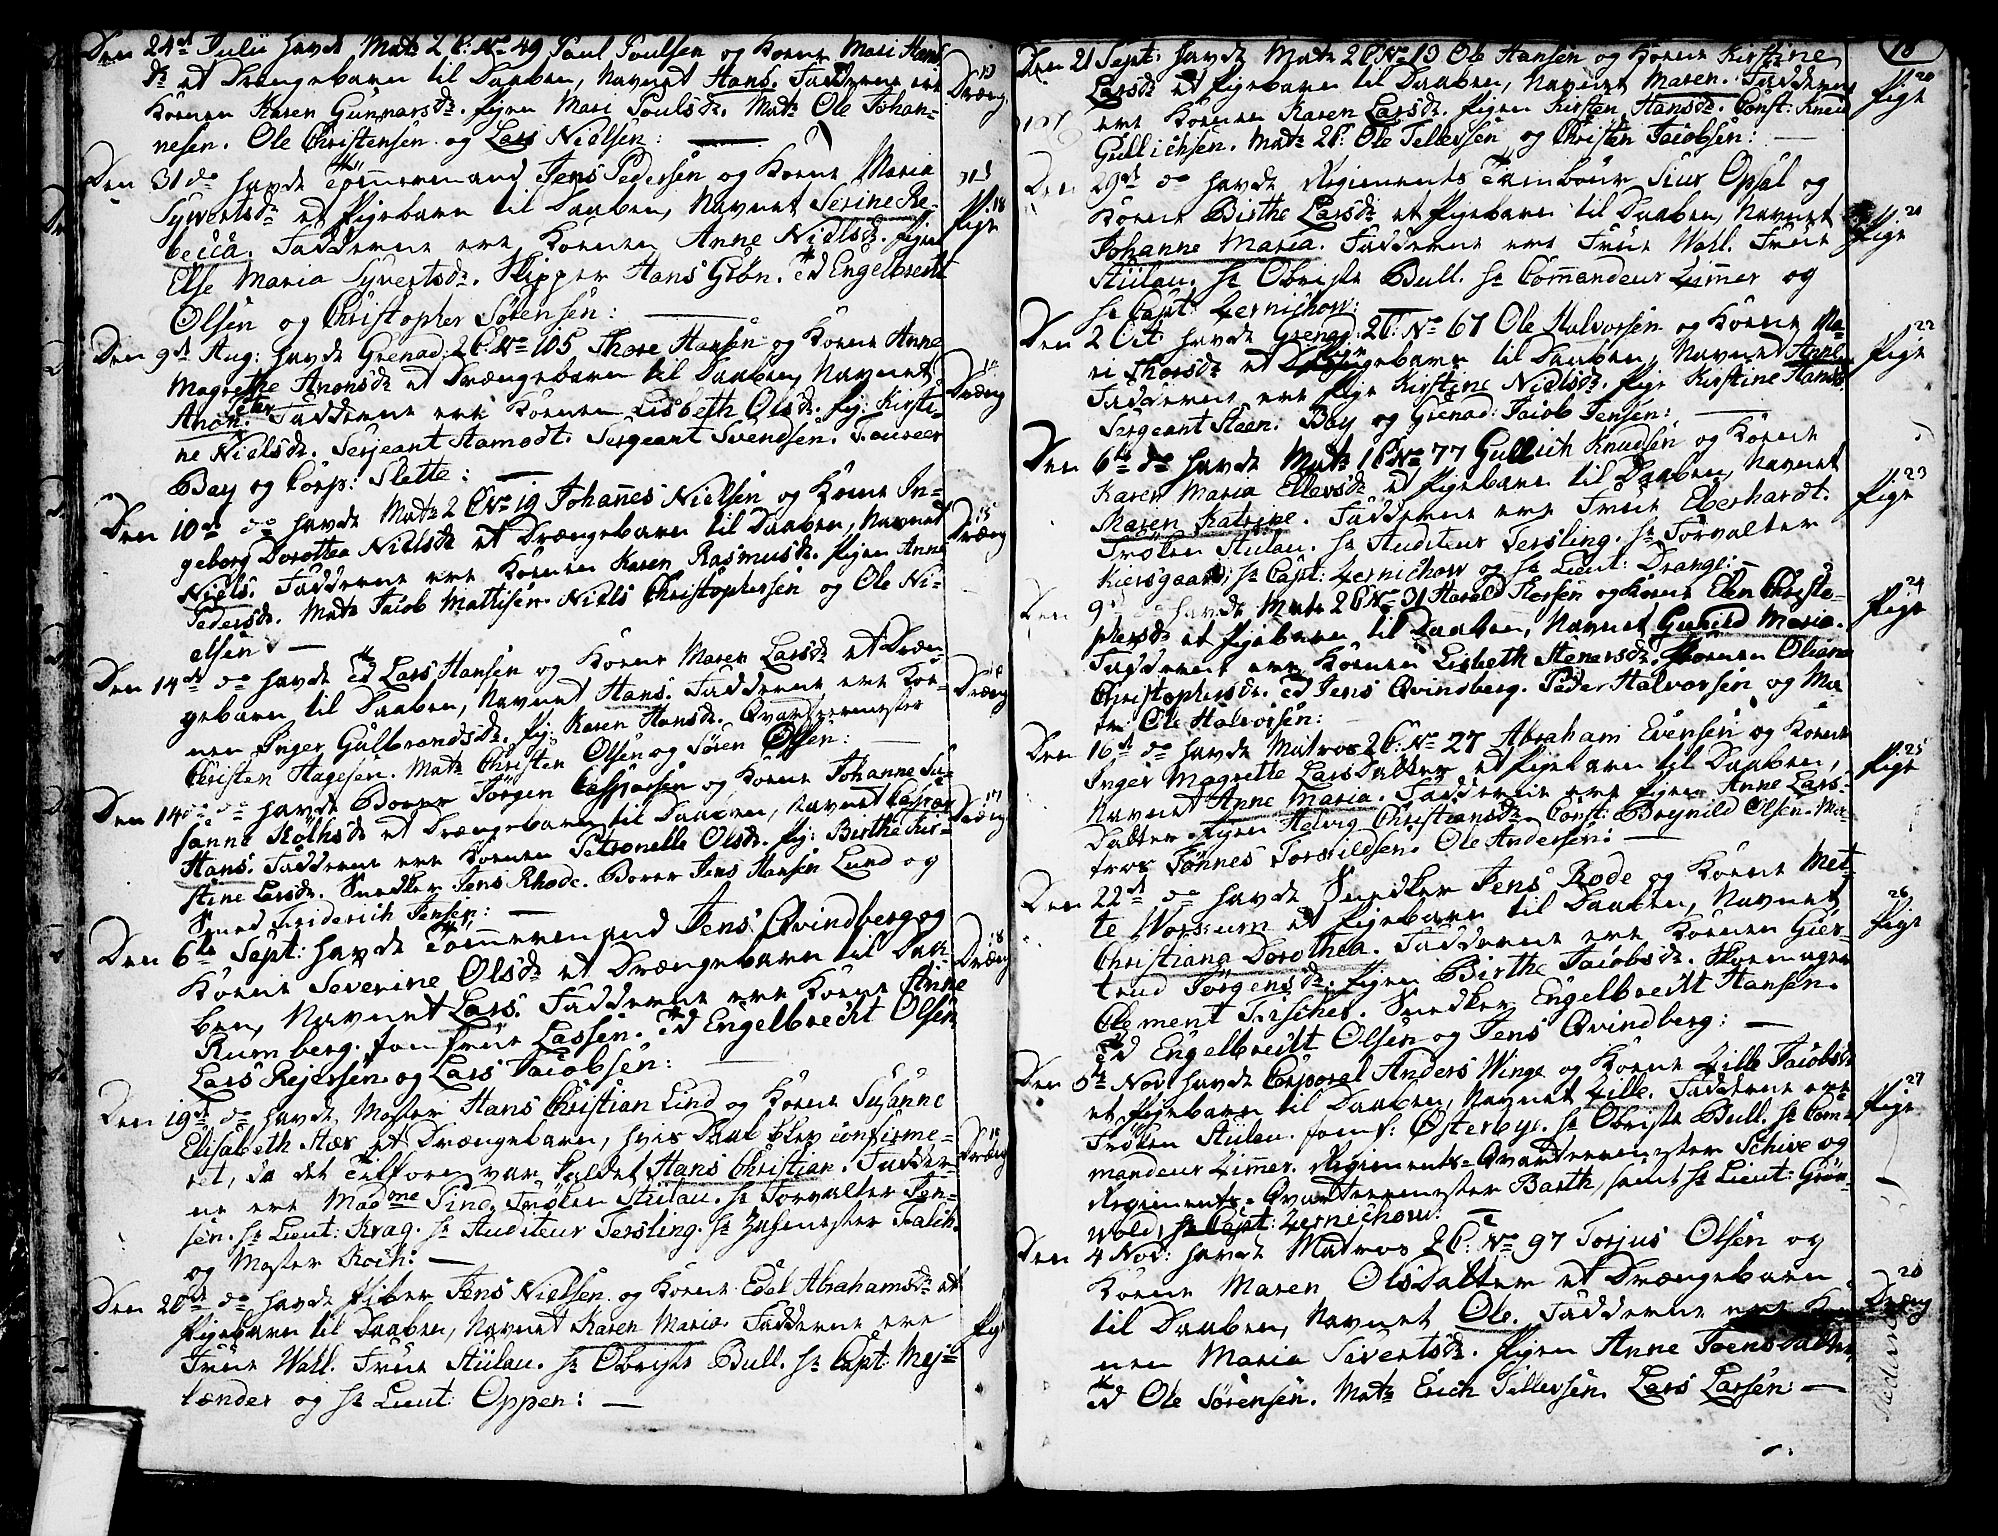 Den 24de Julii havde Matr 2 C: No 49 Poul Poulsen og Kone Mari Hans
dr et Drængebarn til Daaben, Navnet Hans. Fadderne ere
Konen Karen Gunnarsdr. Pigen Mari Poulsdr. Matr Ole Johan-
nesen. Ole Christensen og Lars Nielsen:
13 Dræng
Den 31 do havde Tömmermand Jens Pedersen og Kone Maria
Syvertsdr et Pigebarn til Daaben, Navnet Serine Re-
becca. Fadderne ere Konen Anne Nielsdr. Pigen
Else Maria Syvertsdr. Skipper Hans Grön. Ed Engelbrecht
Olsen og Christopher Sörensen:
18 Pige
Den 9de Aug: havde Grenad: 2 C No 105 Thore Hansen og Kone Anne
Magrethe Anonsdr et Drængebarn til Daaben, Navnet
Anon Peter. Fadderne ere Konen Lisbeth Olsdr. Pig: Kirsti-
ne Nielsdr. Serjeant Aamodt. Sergeant Svendsen. Foureer
Bay og Corp: Slette:
Dræng
Den 10de do havde Matr 2 C No 19 Johannes Nielsen og Kone In-
geborg Dorothea Nielsdr et Drængebarn til Daaben, Navnet
Niels. Fadderne ere Konen Karen Rasmusdr. Pigen Anne
Pedersdr. Matr Jacob Mattisen. Niels Christophersen og Ole Ni-
elsen:
15 Dræng
Den 14de do havde Ed Lars Hansen og Kone Maren Larsdr et Dræn
gebarn til Daaben, Navnet Hans. Fadderne ere Ko-
nen Inger Gulbrandsdr. Pig: Karen Hansdr. Qvarteermester
Christen Hagesen. Matr Christen Olsen og Sören Olsen:
Dræng
Den 14de do havde Borer Jörgen Casparsen og Kone Johanne Su-
sanne Rolhsdr et Drængebarn til Daaben, Navnet Caspar
Hans. Fadderne ere Konen Petronelle Olsdr. Pig: Birthe Kir-
stine Larsdr. Snedker Jens Rhode. Borer Jens Hansen Lund og
Smed Friderich Jensen:
17 Dræng
Den 6te Sept: havde Tömmermand Jens Qvindberg og
Kone Severine Olsdr et Drængebarn til Daa-
ben, Navnet Lars. Fadderne ere Konen Anne
Rumberg. Jomfrue Lassen. Ed Engelbrecht Olsen
Lars Rejersen og Lars Jacobsen:
18 Dræng
Den 19de do havde Mester Hans Christian Lind og Kone Susanne
Elisabeth Stær et Drængebarn, hvis Daab blev confirme-
ret, da det tilforn var kaldet Hans Christian. Fadder-
ne ere Madme Pind. Fröken Stülau. Hr Forvalter Jen-
sen. Hr Lieut: Krag. Hr Auditeur Tersling. Hr
og Mester Koch:
Dræng
Den 20de do havde Piber Jens Nielsen og Kone Edel Abrahamsdr et
Pigebarn til Daaben, Navnet Karen Marie. Fadderne ere
Frue Wall. Frue Stülau. Hr Obriste Bull. Hr Capt: Mej-
lænder og Hr Lieut: Oppen:
Pige
18
Den 21 Sept: havde Matr 2 C No 13 Ole Hansen og Kone Kirstine
Larsdr et Pigebarn til Daaben, Navnet Maren. Fadderne
ere Konen Karen Larsdr. Pigen Kirsten Hansdr. Const: Knud
Gullichsen. Matr 2 C: Ole Tellefsen og Christen Jacobsen:
20 Pige
Den 29de do havde Regiments Tambour Siur Opsal og
Kone Birthe Larsdr et Pigebarn til Daaben, Navnet
Johanne Maria. Fadderne ere Frue Wall. Frue
Stülau. Hr Obriste Bull. Hr Commandeur Zimmer og
Hr Capt: Zernichow:
21 Pige
Den 2 Oct: havde Grenad: 2 C: No 67 Ole Halvorsen og Kone Ma-
ri Thorsdr et Pigebarn til Daaben, Navnet Anne
Fadderne ere Pige Kirstine Nielsdr. Pige Kirstine Hansdr
Sergeant Steen. Bay og Grenad: Jacob Jensen:
22 Pige
Den 6te do havde Matr 1 C No 77 Gullich Knudsen og Kone
Karen Maria Ellevsdr et Pigebarn til Daaben, Navnet
Maren Katrine. Fadderne ere Frue Eberhardt.
Fröken Stülau. Hr Auditeur Tersling. Hr Forvalter
Kiersgaard, Hr Capt: Zernichow og Hr Lieut: Drange:
23 Pige
Den 9de do havde Matr 2 C No 31 Harald Thorsen og Kone Elen Christo-
phersdr et Pigebarn til Daaben, Navnet Gunild Maria.
Fadderne ere Konen Lisbeth Stenersdr. Konen Oliane
Christophersdr. Ed Jens Qvindberg. Peder Halvorsen og Ma
tr: Ole Halvorsen:
24 Pige
Den 16de do havde Matros 2 C: No 27 Abraham Evensen og Kone
Inger Magrette Lars Datter et Pigebarn til Daaben,
Navnet Anne Maria. Fadderne ere Pigen Anne Lars-
Datter. Pigen Helvig Christiansdr. Const: Breynild Olsen. Ma-
tros Tönnes Torkildsen. Ole Andersen:
25 Pige
Den 22de do havde Snedker Jens Rode og Kone Met-
te Worsum et Pigebarn til Daaben, Navnet
Christiana Dorothea. Fadderne ere Konen Gier-
trud Jörgensdr. Pigen Birthe Jacobsdr. Skoemager
Clement Fischer. Snedker Engelbrecht Hansen.
Ed Engelbrecht Olsen og Jens Qvindberg:
26 Pige
Den 5te Nov: havde Corporal Anders Winge og Kone Zille Jacobsdr
et Pigebarn til Daaben, Navnet Zille. Fadderne ere
Fröken Stülau. Jomf: Østerbye. Hr Obriste Bull. Hr Com-
mandeur Zimmer. Regiments-Qvarteermester Schive og
Regiments-Qvarteermester Barth, samt Hr Lieut: Grön-
vold, Hr Capt: Zernichow:
27 Pige
Den 4 Nov: havde Matros 2 C: No 97 Torjus Olsen og
Kone Maren Olsdatter et Drængebarn
til Daaben, Navnet Ole. Fadderne ere Ko-
nen Maria Sivertsdr. Pigen Anne Joensdatter,
Ed Ole Sörensen. Matr Erich Tellefsen. Lars Larsen:
28 Dræng